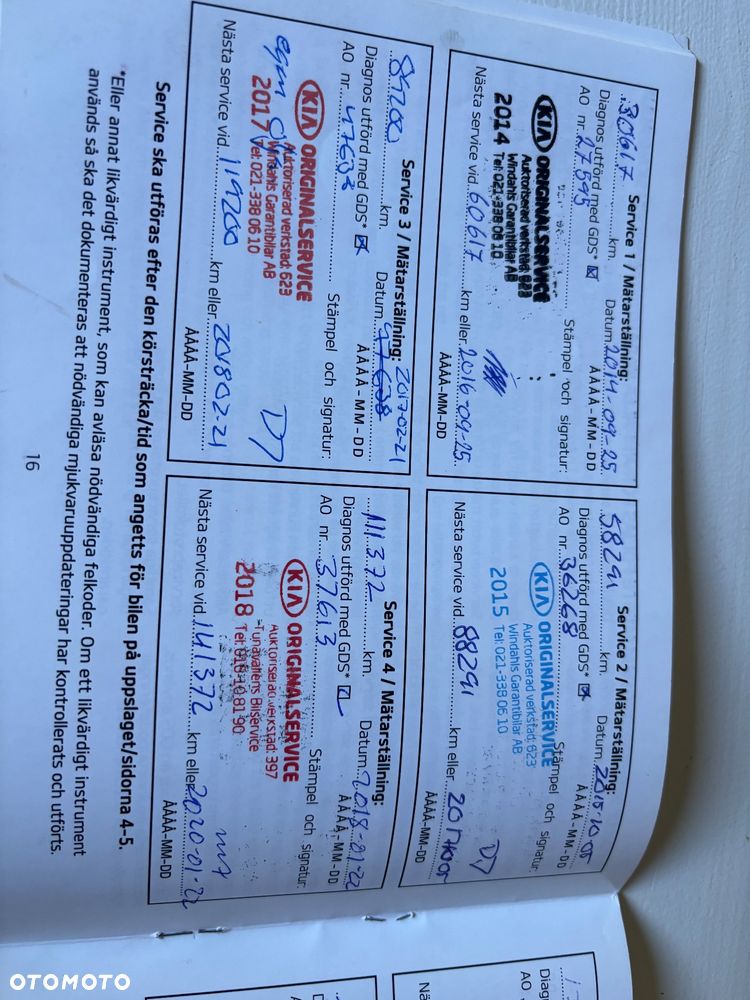 Service 1 / Mätarställning:
30617 km. Datum 2014-09-25
Diagnos utförd med GDS* ÅÅÅÅ-MM-DD
AO nr. 27595
Stämpel och signatur:
KIA ORIGINALSERVICE
Auktoriserad verkstad: 623
Windahls Garantibilar AB
2014 Tel: 021-338 06 10
Nästa service vid 60617 km eller 2016-09-25
ÅÅÅÅ-MM-DD
Service 2 / Mätarställning:
58291 km. Datum 2015-10-05
Diagnos utförd med GDS* ÅÅÅÅ-MM-DD
AO nr. 36268
Stämpel och signatur:
KIA ORIGINALSERVICE
Auktoriserad verkstad: 623
Windahls Garantibilar AB
2015 Tel: 021-338 06 10
Nästa service vid 88291 km eller 20171005
ÅÅÅÅ-MM-DD
Service 3 / Mätarställning:
89200 km. Datum 201702-21
Diagnos utförd med GDS* ÅÅÅÅ-MM-DD
AO nr. 47638
Stämpel och signatur:
KIA ORIGINALSERVICE
Auktoriserad verkstad: 623
Windahls Garantibilar AB
2017 Tel: 021-338 06 10
Nästa service vid 119200 km eller 201802-21
ÅÅÅÅ-MM-DD
Service 4 / Mätarställning:
111372 km. Datum 2018-01-22
Diagnos utförd med GDS* ÅÅÅÅ-MM-DD
AO nr. 37613
Stämpel och signatur:
KIA ORIGINALSERVICE
Auktoriserad verkstad: 397
Tunavallens Bilservice
2018 Tel: 016-10 81 90
Nästa service vid 141372 km eller 2020-01-22
ÅÅÅÅ-MM-DD
Service ska utföras efter den körsträcka/tid som angetts för bilen på uppslaget/sidorna 4-5.
*Eller annat likvärdigt instrument, som kan avläsa nödvändiga felkoder. Om ett likvärdigt instrument
används så ska det dokumenteras att nödvändiga mjukvaruuppdateringar har kontrollerats och utförts.
16
OTOMOTO